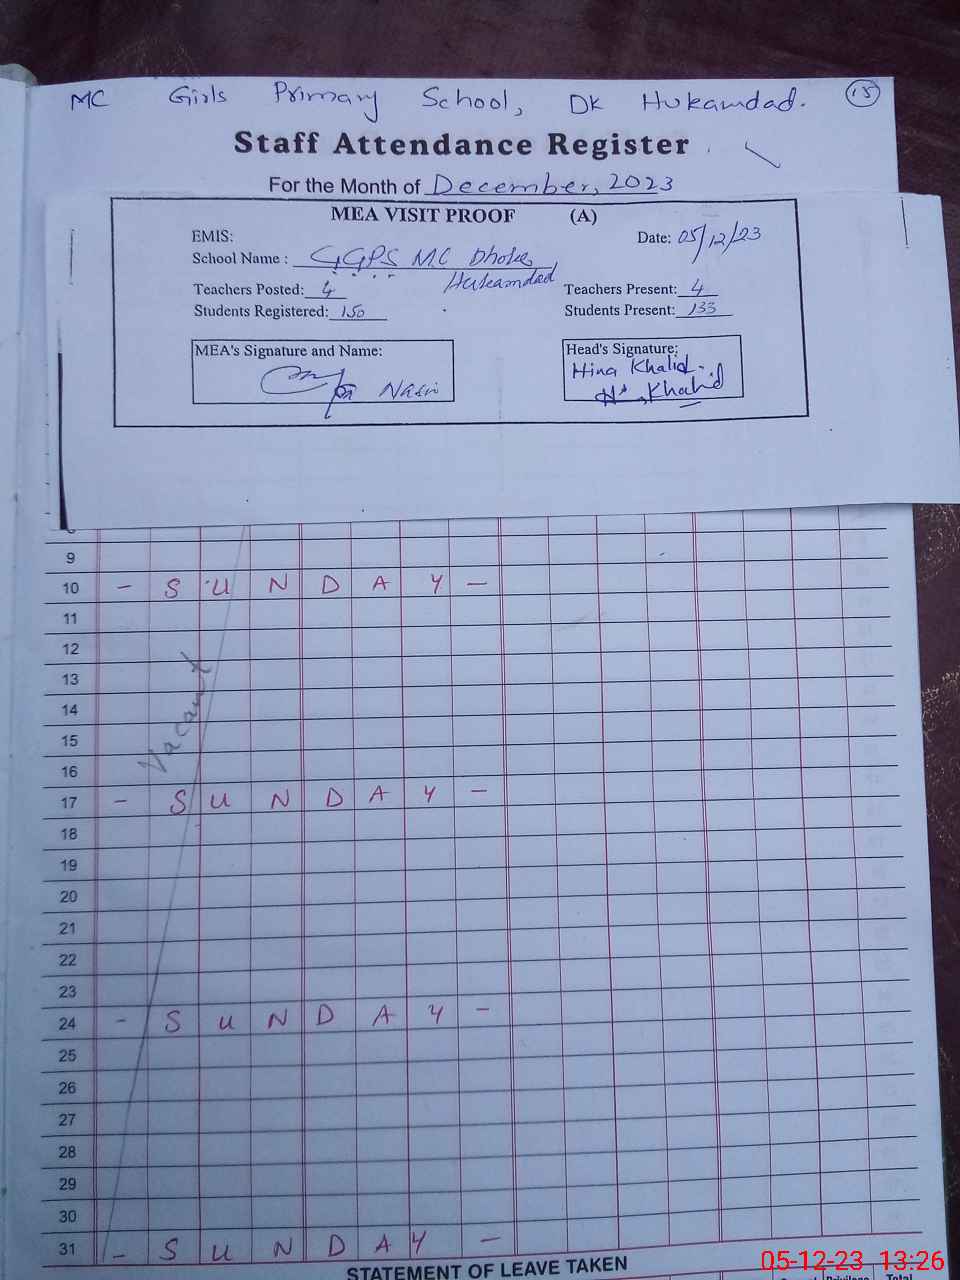 MC Girls Primary School, DK Hukamdad. 15
Staff Attendance Register
For the Month of December, 2023
MEA VISIT PROOF (A)
EMIS:
Date: 05/12/23
School Name : GGPS MC Dhoke
Hukamdad
Teachers Posted: 4 Teachers Present: 4
Students Registered: 150 Students Present: 133
MEA's Signature and Name:
Nasir
Head's Signature:
Hina Khalid
Khalid
9
10 - S U N D A Y -
11
12
13
14
15
16
Vacant
17 - S U N D A Y -
18
19
20
21
22
23
24 - S U N D A Y -
25
26
27
28
29
30
31 - S U N D A Y -
STATEMENT OF LEAVE TAKEN
05-12-23 13:26
Privilege Total